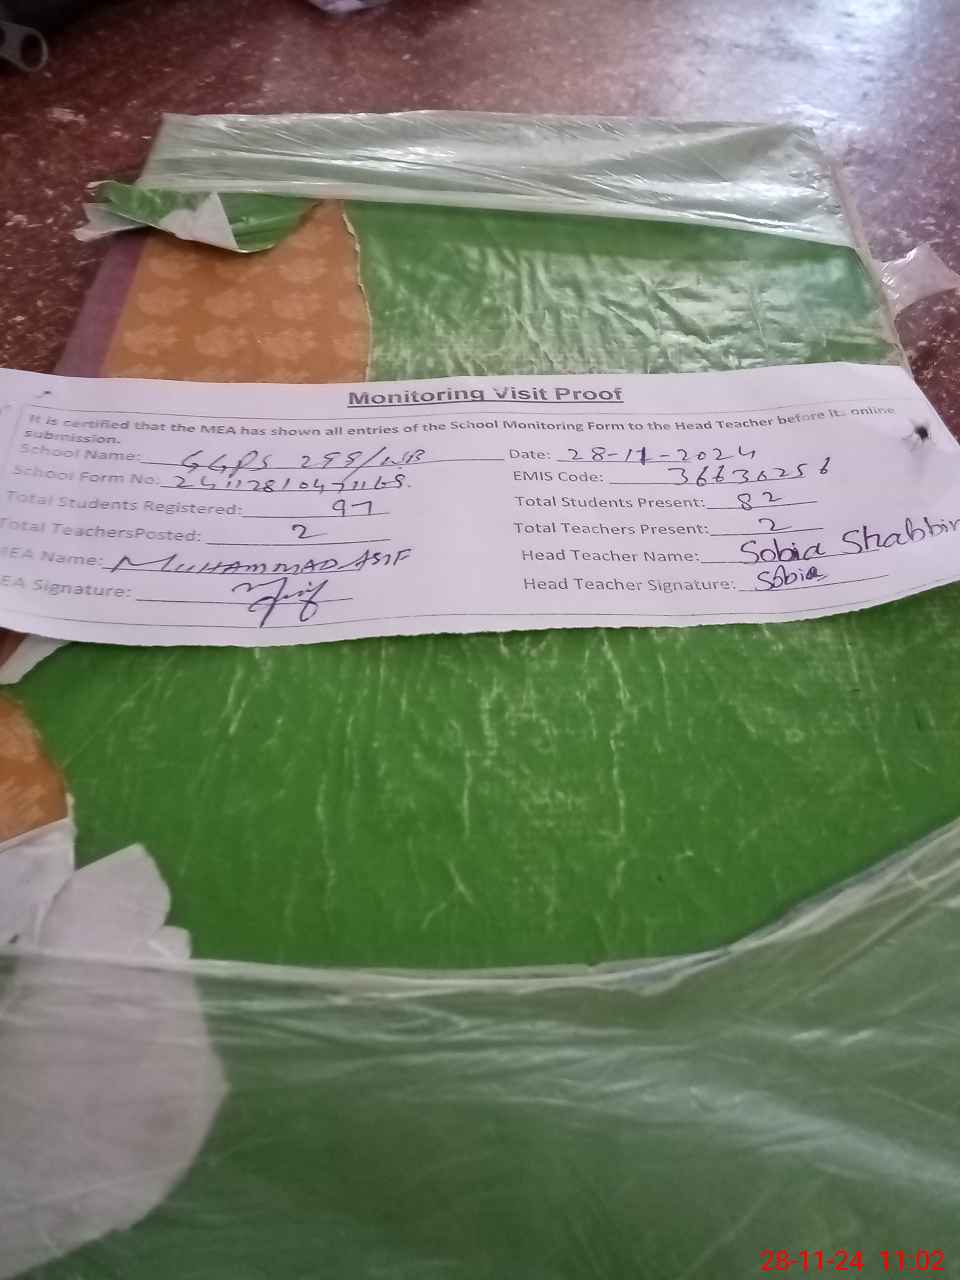 Monitoring Visit Proof
It is certified that the MEA has shown all entries of the School Monitoring Form to the Head Teacher before its online
submission.
School Name: GGPS 299/WB Date: 28-11-2024
School Form No: EMIS Code: 36630256
Total Students Registered: 97 Total Students Present: 82
Total TeachersPosted: 2 Total Teachers Present: 2
MEA Name: MUHAMMAD ASIF Head Teacher Name: Sobia Shabbir
EA Signature: Head Teacher Signature: Sobia
28-11-24 11:02